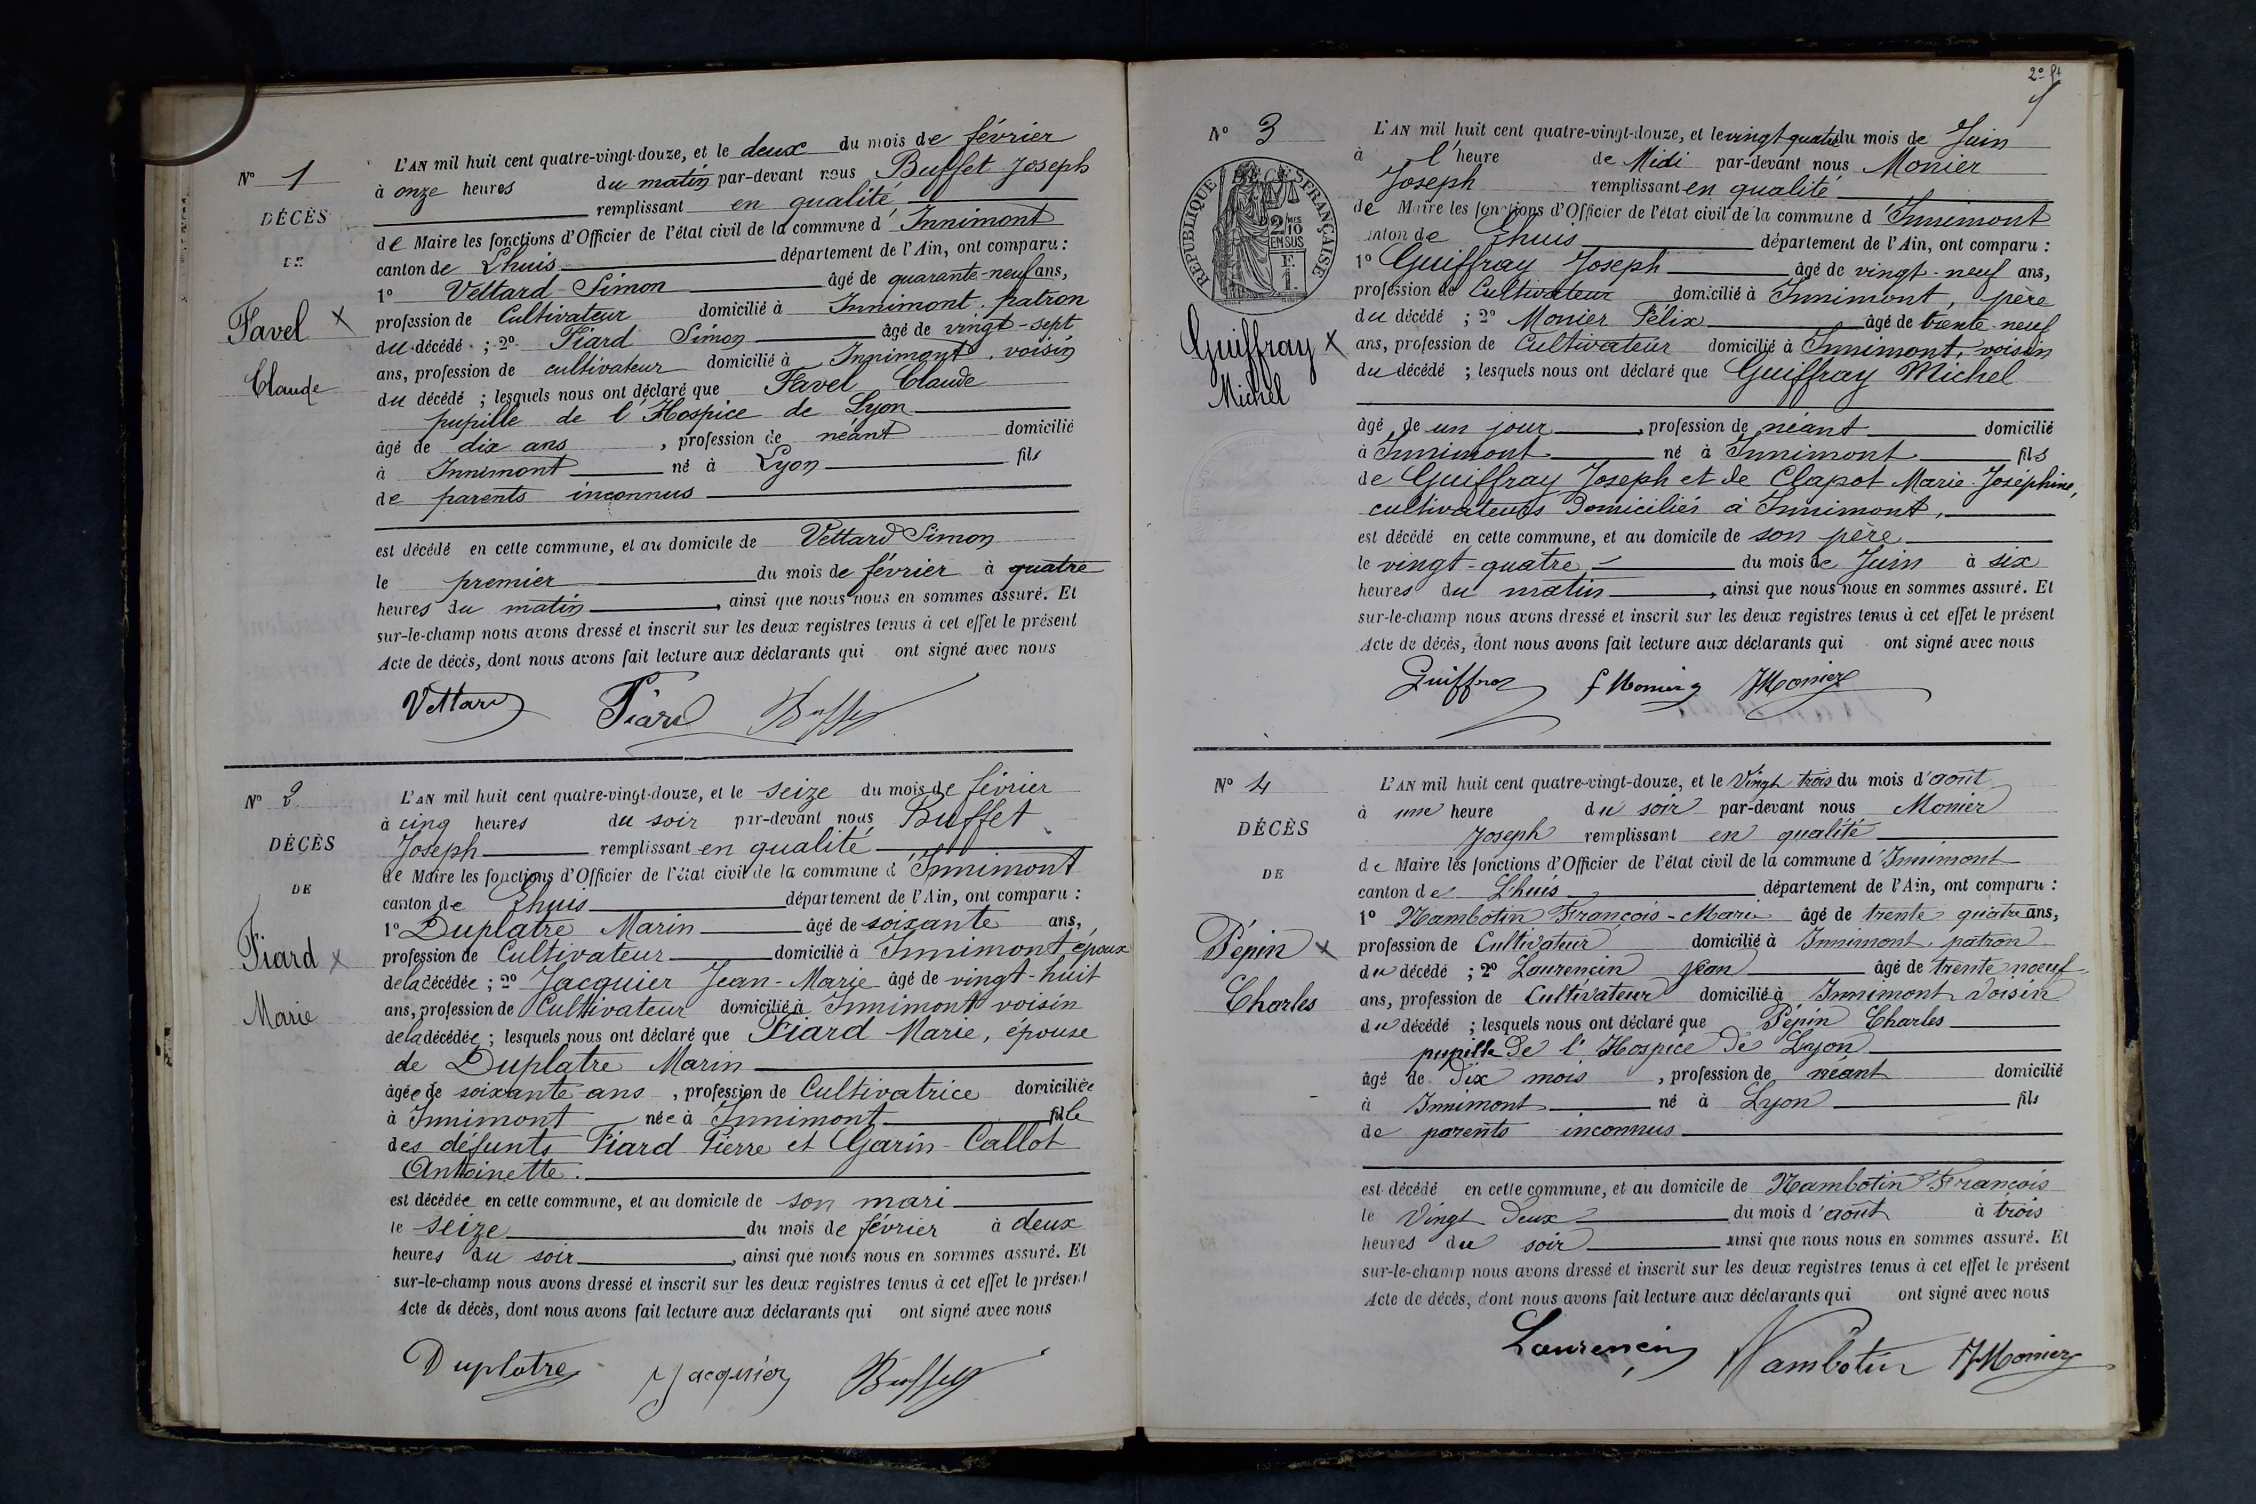 N° 1
DÉCÈS
DE
Favel X
Claude
L'AN mil huit cent quatre-vingt-douze, et le deux du mois de février
à onze heures du matin par-devant nous Buffet Joseph
remplissant en qualité
de Maire les fonctions d'Officier de l'état civil de la commune d'Innimont
canton de Lhuis département de l'Ain, ont comparu :
1° Vettard Simon âgé de quarante-neuf ans,
profession de Cultivateur domicilié à Innimont, patron
du décédé ; 2° Fiard Simon âgé de vingt-sept
ans, profession de cultivateur domicilié à Innimont, voisin
du décédé ; lesquels nous ont déclaré que Favel Claude
pupille de l'Hospice de Lyon
âgé de dix ans, profession de néant domicilié
à Innimont né à Lyon fils
de parents inconnus
est décédé en cette commune, et au domicile de Vettard Simon
le premier du mois de février à quatre
heures du matin, ainsi que nous nous en sommes assuré. Et
sur-le-champ nous avons dressé et inscrit sur les deux registres tenus à cet effet le présent
Acte de décès, dont nous avons fait lecture aux déclarants qui ont signé avec nous
Vettard Fiard Buffet
N° 2
DÉCÈS
DE
Fiard X
Marie
L'AN mil huit cent quatre-vingt-douze, et le seize du mois de février
à cinq heures du soir par-devant nous Buffet
Joseph remplissant en qualité
de Maire les fonctions d'Officier de l'état civil de la commune d'Innimont
canton de Lhuis département de l'Ain, ont comparu :
1° Duplatre Marin âgé de soixante ans,
profession de Cultivateur domicilié à Innimont époux
de la décédée ; 2° Jacquier Jean-Marie âgé de vingt-huit
ans, profession de Cultivateur domicilié à Innimont voisin
de la décédée ; lesquels nous ont déclaré que Fiard Marie, épouse
de Duplatre Marin
âgée de soixante ans, profession de Cultivatrice domiciliée
à Innimont née à Innimont fille
des défunts Fiard Pierre et Garin-Callot
Antoinette.
est décédée en cette commune, et au domicile de son mari
le seize du mois de février à deux
heures du soir, ainsi que nous nous en sommes assuré. Et
sur-le-champ nous avons dressé et inscrit sur les deux registres tenus à cet effet le présent
Acte de décès, dont nous avons fait lecture aux déclarants qui ont signé avec nous
Duplatre Jacquier Buffet
2° ft
N° 3
RÉPUBLIQUE FRANÇAISE
2/10 EN SUS
F. 1.
Guiffray X
Michel
L'AN mil huit cent quatre-vingt-douze, et le vingt quatre du mois de Juin
à l'heure de Midi par-devant nous Monier
Joseph remplissant en qualité
de Maire les fonctions d'Officier de l'état civil de la commune d'Innimont
canton de Lhuis département de l'Ain, ont comparu :
1° Guiffray Joseph âgé de vingt-neuf ans,
profession de Cultivateur domicilié à Innimont, père
du décédé ; 2° Monier Félix âgé de trente-neuf
ans, profession de Cultivateur domicilié à Innimont, voisin
du décédé ; lesquels nous ont déclaré que Guiffray Michel
âgé de un jour, profession de néant domicilié
à Innimont né à Innimont fils
de Guiffray Joseph et de Clapot Marie-Joséphine,
cultivateurs Domiciliés à Innimont,
est décédé en cette commune, et au domicile de son père
le vingt-quatre du mois de Juin à six
heures du matin, ainsi que nous nous en sommes assuré. Et
sur-le-champ nous avons dressé et inscrit sur les deux registres tenus à cet effet le présent
Acte de décès, dont nous avons fait lecture aux déclarants qui ont signé avec nous
Guiffray f Monier JMonier
N° 4
DÉCÈS
DE
Pépin X
Charles
L'AN mil huit cent quatre-vingt-douze, et le Vingt trois du mois d'août
à une heure du soir par-devant nous Monier
Joseph remplissant en qualité
de Maire les fonctions d'Officier de l'état civil de la commune d'Innimont
canton de Lhuis département de l'Ain, ont comparu :
1° Nambotin François-Marie âgé de trente quatre ans,
profession de Cultivateur domicilié à Innimont, patron
du décédé ; 2° Laurencin Jean âgé de trente noeuf
ans, profession de Cultivateur domicilié à Innimont Voisin
du décédé ; lesquels nous ont déclaré que Pépin Charles
pupille de l'Hospice de Lyon
âgé de Dix mois, profession de néant domicilié
à Innimont né à Lyon fils
de parents inconnus
est décédé en cette commune, et au domicile de Nambotin François
le Vingt Deux du mois d'août à trois
heures du soir ainsi que nous nous en sommes assuré. Et
sur-le-champ nous avons dressé et inscrit sur les deux registres tenus à cet effet le présent
Acte de décès, dont nous avons fait lecture aux déclarants qui ont signé avec nous
Laurencin Nambotin JMonier